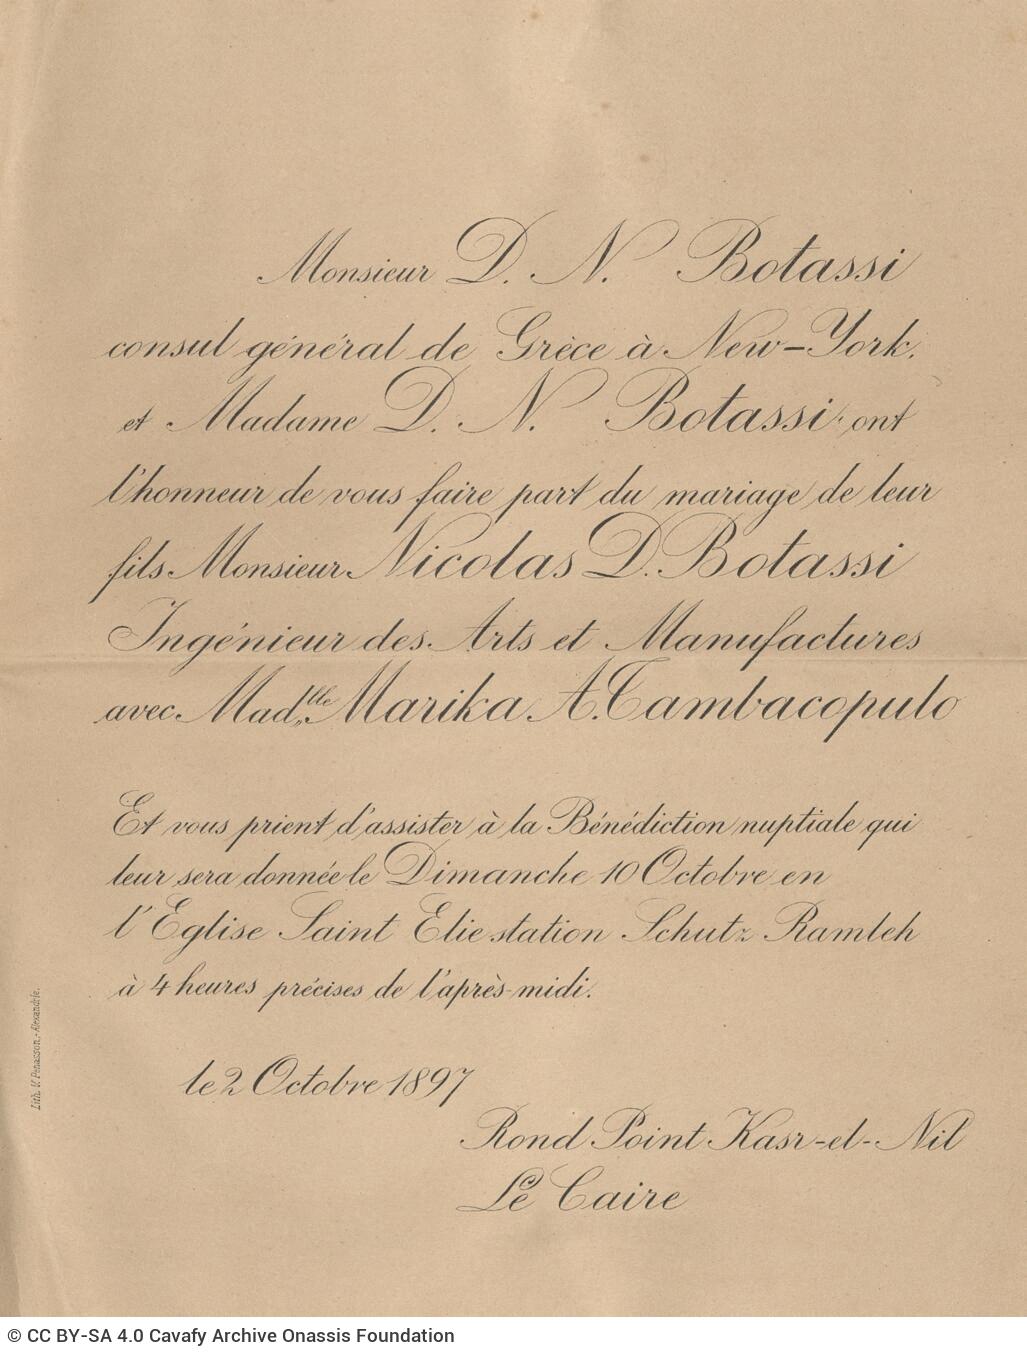 Monsieur D. N. Botassi
consul général de Grèce à New-York.
et Madame D. N. Botassi ont
l'honneur de vous faire part du mariage de leur
fils Monsieur Nicolas D. Botassi
Ingénieur des Arts et Manufactures
avec Mad.lle Marika A. Tambacopulo
Et vous prient d'assister à la Bénédiction nuptiale qui
leur sera donnée le Dimanche 10 Octobre en
l'Eglise Saint Elie station Schutz Ramleh
à 4 heures précises de l'après-midi.
le 2 Octobre 1897
Rond Point Kasr-el-Nil
Le Caire
Lith. V. Penasson.- Alexandrie.
© CC BY-SA 4.0 Cavafy Archive Onassis Foundation